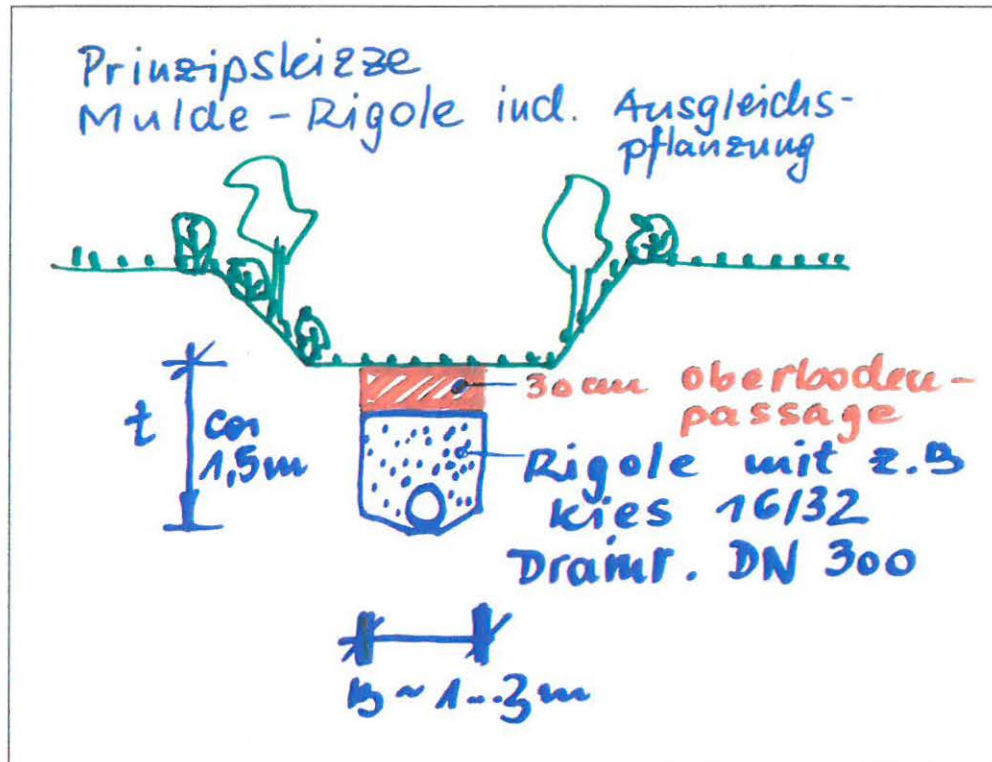 Prinzipskizze
Mulde-Rigole incl. Ausgleichs-
pflanzung
30 cm Oberboden-
passage
t ca
1,5m
Rigole mit z.B
Kies 16/32
Drainr. DN 300
B ~ 1...2m